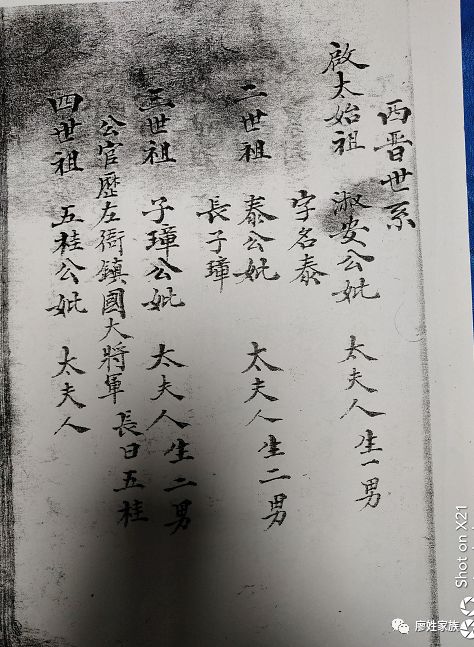 西晋世系
啟太始祖 淑安公妣 太夫人 生一男
字名泰
二世祖 泰公妣 太夫人 生二男
長子璋
三世祖 子璋公妣 太夫人 生二男
公官歷左衛鎮國大將軍 長曰五桂
四世祖 五桂公妣 太夫人
Shot on X21
廖姓家族